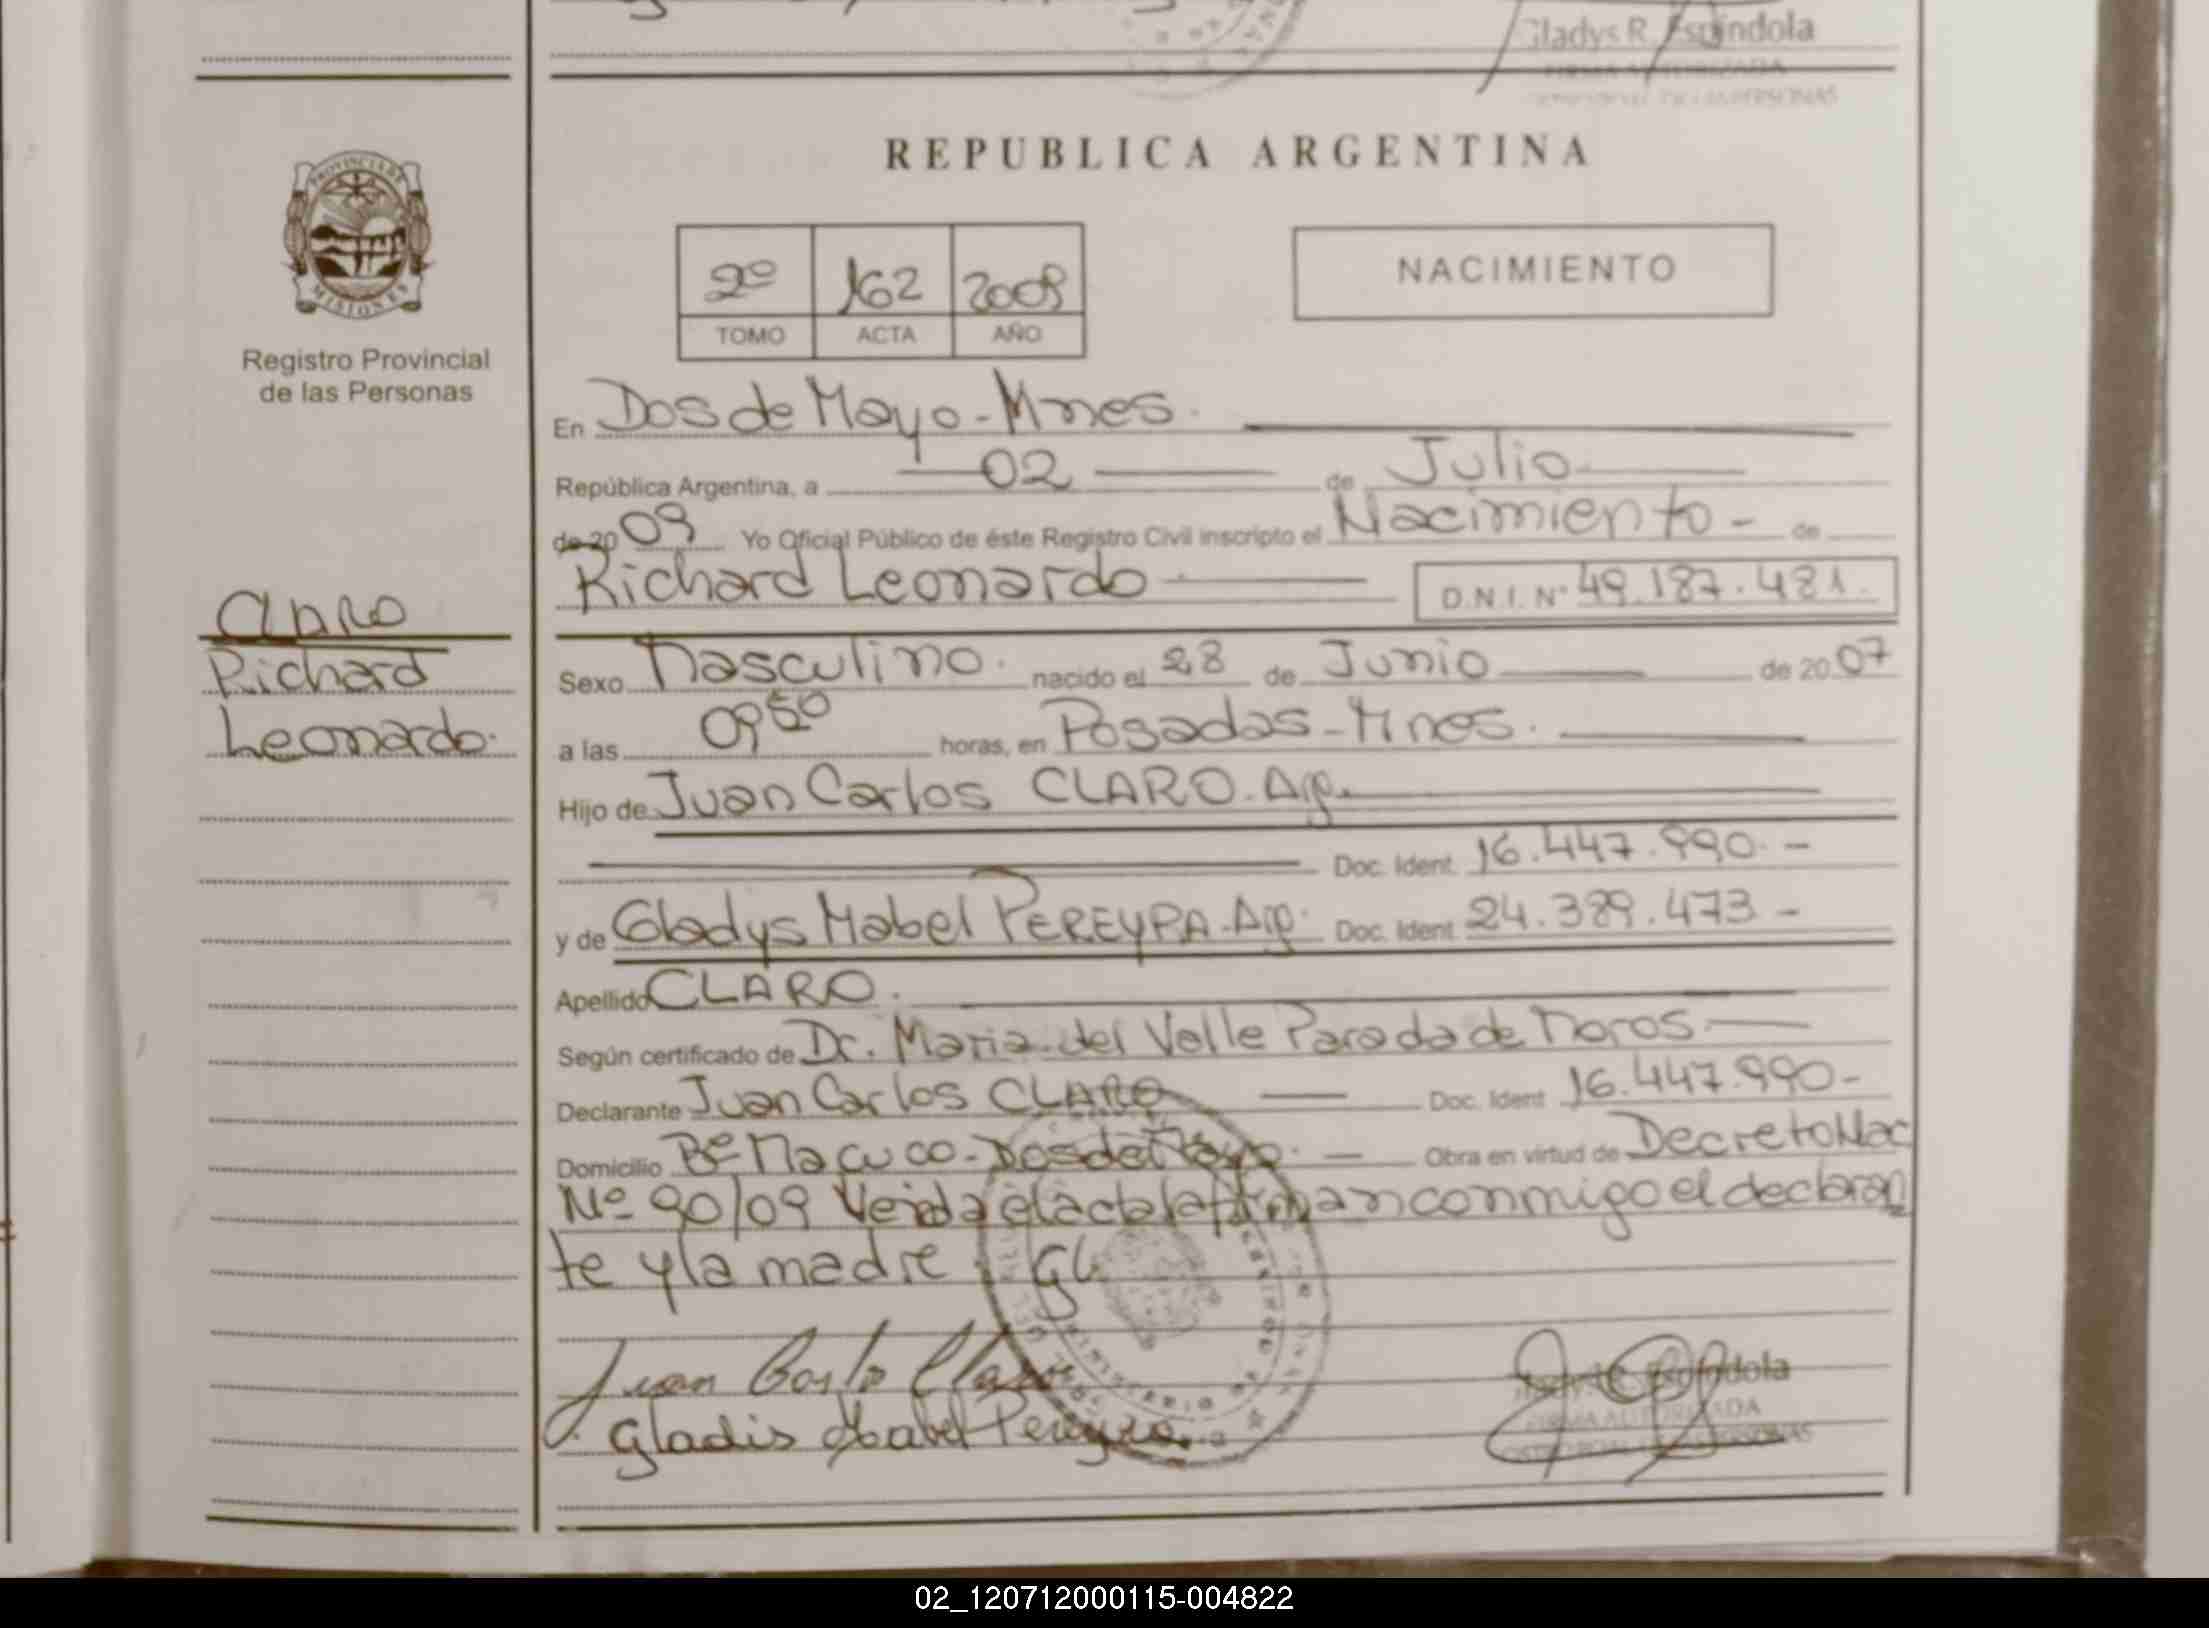 Gladys R. Espindola
FIRMA AUTORIZADA
REPUBLICA ARGENTINA
PROVINCIA DE
MISIONES
Registro Provincial
de las Personas
2º 162 2009
TOMO ACTA AÑO
NACIMIENTO
En Dos de Mayo - Mnes.
República Argentina, a 02 de Julio
de 20 09 Yo Oficial Público de éste Registro Civil inscripto el Nacimiento - de
Richard Leonardo D.N.I. Nº 49.187.481.
CLARO
Richard
Leonardo.
Sexo Masculino. nacido el 28 de Junio de 20 07
a las 09 50 horas, en Posadas - Mnes.
Hijo de Juan Carlos CLARO. Arg.
Doc. Ident. 16.447.990. -
y de Gladys Mabel PEREYRA. Arg. Doc. Ident. 24.389.473 -
Apellido CLARO.
Según certificado de Dr. Maria del Valle Parada de Moros
Declarante Juan Carlos CLARO Doc. Ident 16.447.990 -
Domicilio Bº Macuco - Dos de Mayo. - Obra en virtud de Decreto Nac
Nº 90/09 Leida el acta la firman conmigo el declaran
te y la madre
Juan Carlo Claro
Gladis Mabel Pereyra.
Espindola
FIRMA AUTORIZADA
02_120712000115-004822